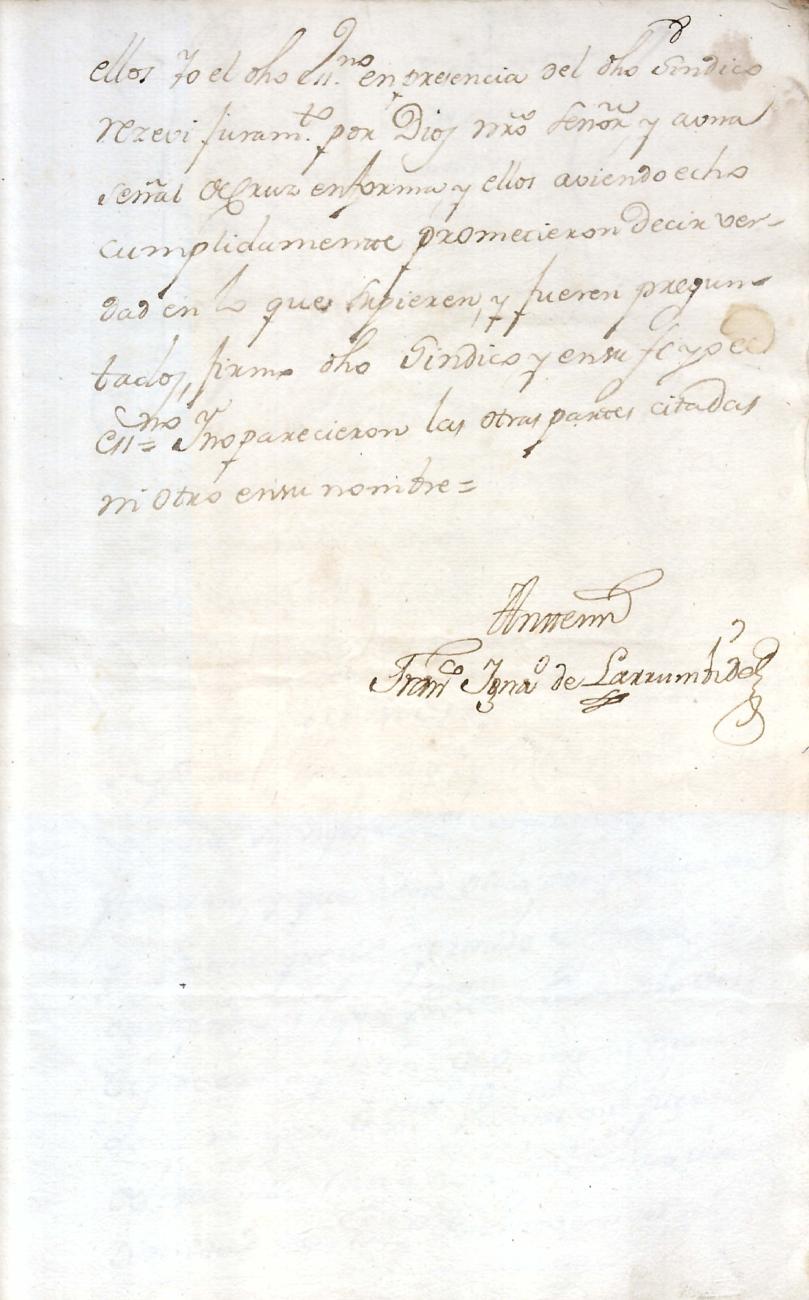 ellos Yo el dho ess.no en presencia del dho Sindico
rezevi juram.to por Dios nrō señōr y a una
señāl de Cruz en forma, y ellos aviendo echo
cumplidamente prometieron decir ver-
dad en lo que supieren, y fueren pregun-
tados, firmo dho Sindico y en su fe yo el
ess.no = Y no parecieron las otras partes citadas
ni otro en su nombre =
Antemi
Fran.co Igna.o de Larrumbide